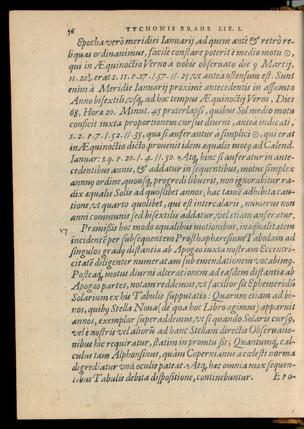 36 TYCHONIS BRAHE LIB. I.
Epocha verò meridiei Ianuarij, ad quem ante & retrò re-
liquas ordinauimus, facilè constare poterit è medio motu ☉,
qui in Æquinoctio Verno à nobis obseruato die 9 Martij,
H. 20⅔, erat S. 11. P. 27. /. 57. //. 25, vt antea ostensum est. Sunt
enim à Meridie Ianuarij proximè antecedentis in assumto
Anno bisextili, vsq, ad hoc tempus Æquinoctij Verni, Dies
68, Hora 20. Minut. 45 præterlapsi, quibus Sol medio motu
conficit iuxta proportionem cursus diurni, antea indicati,
S. 2. P. 7. /. 52. //. 35, qua si auferantur à simplici ☉, qui erat
in Æquinoctio dicto, prouenit idem æqualis motq ad Calend.
Ianuar: S. 9. P. 20. /. 4. //. 50. Atq, hinc si auferatur in ante-
cedentibus annis, & addatur in sequentibus, motus simplex
annuq ordine, quousq, progredi libuerit, non ignorabitur ra-
dix æqualis Solis ad quoslibet annos; hac tamē adhibita cau-
tione, vt quarto quolibet, qui est intercalaris, numerus non
anni communis sed bisextilis addatur, vel etiam auferatur.
Præmissis hoc modo æqualibus motionibus, inæqualitatem
incidentē per subsequentem Prosthaphæresium Tabulam ad
singulos gradq distantiæ ab Apogæo iuxta nostram Eccentri-
citatē diligenter numeratam sub emendationem vocabimq.
Posteaq, motus diurni alterationem ad easdem distantias ab
Apogæo partes, notam reddemus, vt facilior sit Ephemeridis
Solarium ex his Tabulis supputatio: Quarum etiam ad bi-
nos, quibq Stella Noua (de qua hoc Libro agimus) apparuit
annos, exemplar superaddemus, vt si quando Solaris cursq,
vel è nostris vel aliorū ad hanc Stellam directis Obseruatio-
nibus hic requiratur, statim in promtu sit; Quantumq, cal-
culus tam Alphonsinus, quàm Copernianus à cœlesti norma
digrediatur vnà oculis pateat. Atq, hæc omnia mox sequen-
tibus Tabulis debita dispositione, continebuntur.
Epo-